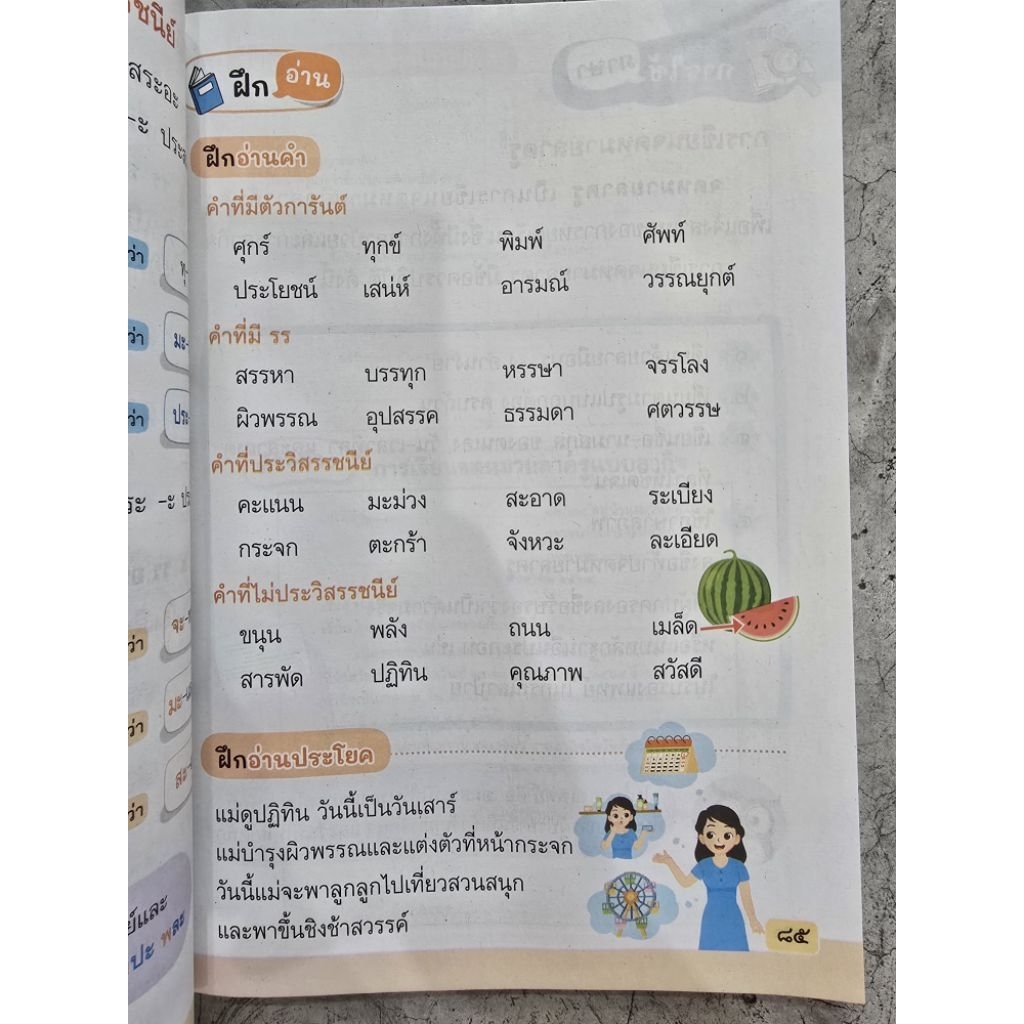 ฝึกอ่าน
ฝึกอ่านคำ
คำที่มีตัวการันต์
ศุกร์ ทุกข์ พิมพ์ ศัพท์
ประโยชน์ เสน่ห์ อารมณ์ วรรณยุกต์
คำที่มี รร
สรรหา บรรทุก หรรษา จรรโลง
ผิวพรรณ อุปสรรค ธรรมดา ศตวรรษ
คำที่ประวิสรรชนีย์
คะแนน มะม่วง สะอาด ระเบียง
กระจก ตะกร้า จังหวะ ละเอียด
คำที่ไม่ประวิสรรชนีย์
ขนุน พลัง ถนน เมล็ด
สารพัด ปฏิทิน คุณภาพ สวัสดี
ฝึกอ่านประโยค
แม่ดูปฏิทิน วันนี้เป็นวันเสาร์
แม่บำรุงผิวพรรณและแต่งตัวที่หน้ากระจก
วันนี้แม่จะพาลูกลูกไปเที่ยวสวนสนุก
และพาขึ้นชิงช้าสวรรค์
๘๕